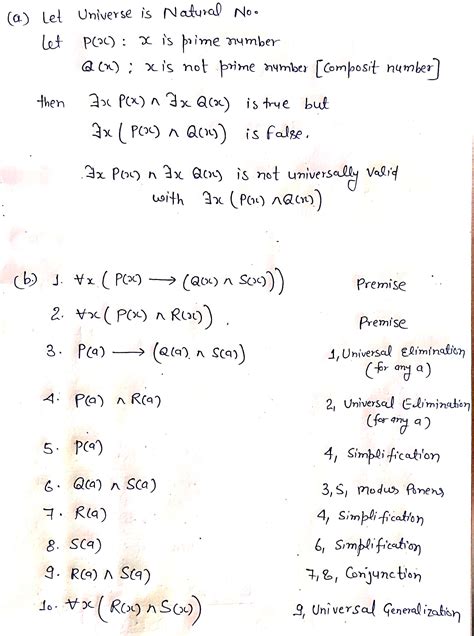 (a) Let Universe is Natural No.
Let P(x) : x is prime number
Q(x) ; x is not prime number [Composit number]
then ∃x P(x) ∧ ∃x Q(x) is true but
∃x (P(x) ∧ Q(x)) is false.
∃x P(x) ∧ ∃x Q(x) is not universally valid
with ∃x (P(x) ∧Q(x))
(b) 1. ∀x (P(x) → (Q(x) ∧ S(x))) Premise
2. ∀x (P(x) ∧ R(x)). Premise
3. P(a) → (Q(a) ∧ S(a)) 1, Universal Elimination
(for any a)
4. P(a) ∧ R(a) 2, Universal Elimination
(for any a)
5. P(a) 4, Simplification
6. Q(a) ∧ S(a) 3, 5, Modus Ponens
7. R(a) 4, Simplification
8. S(a) 6, Simplification
9. R(a) ∧ S(a) 7, 8, Conjunction
10. ∀x (R(x) ∧ S(x)) 9, Universal Generalization